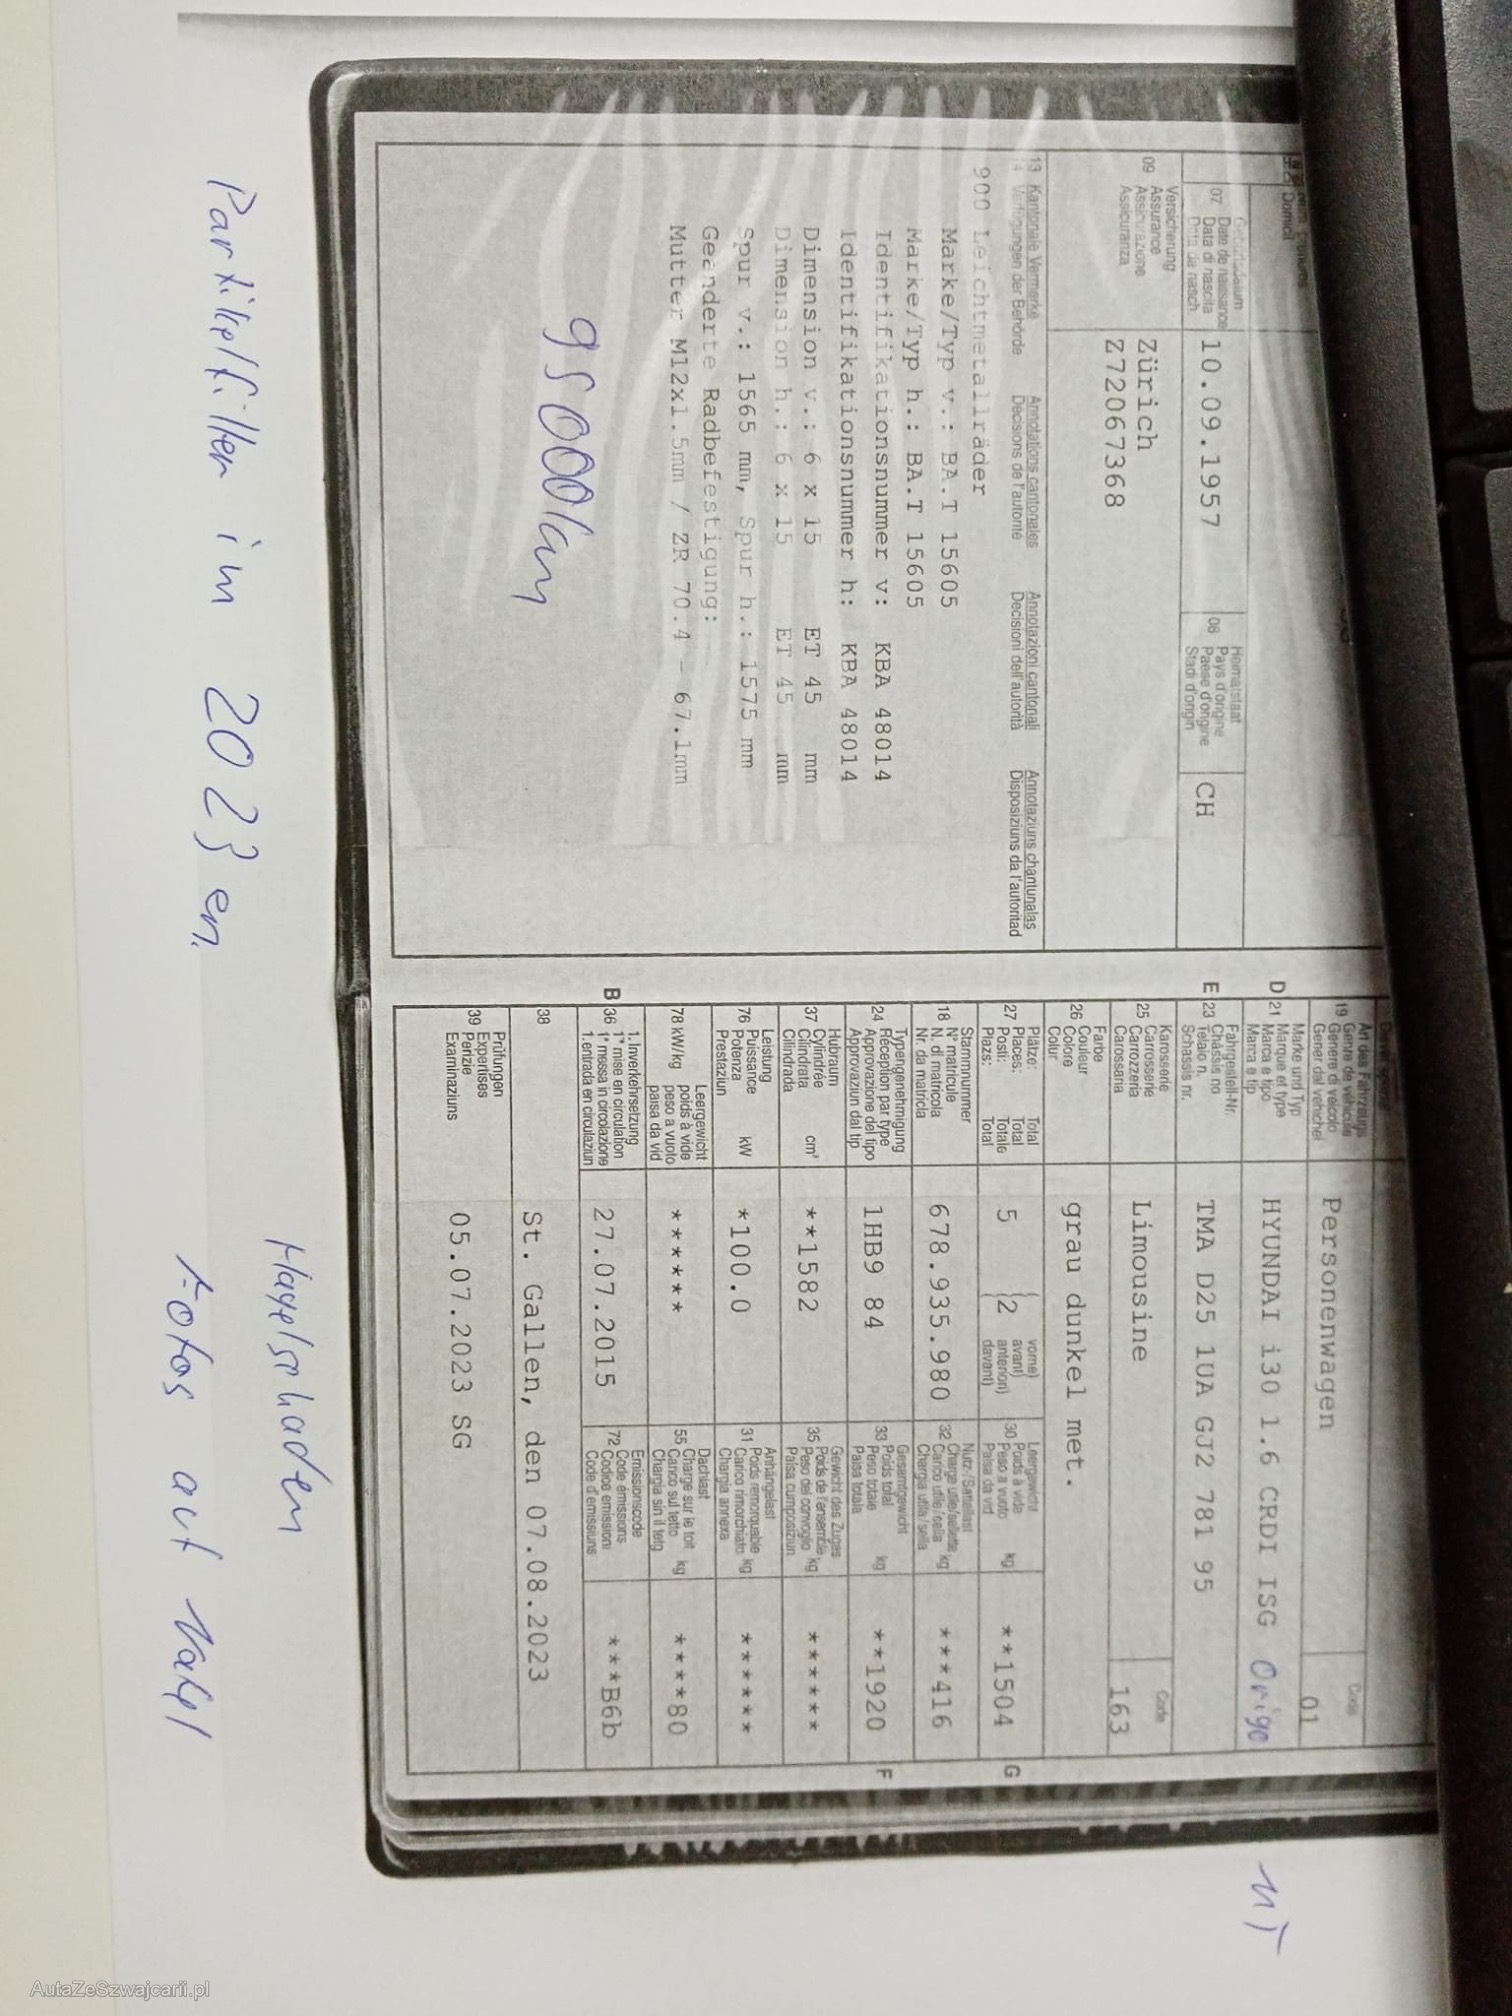 Geburtsdatum
07 Date de naissance
Data di nascita
Data da nasch.
10.09.1957
08
Heimatstaat
Pays d'origine
Paese d'origine
Stadi d'origin
CH
Versicherung
09 Assurance
Assicurazione
Assicuranza
Zürich
Z72067368
13 Kantonale Vermerke Annotations cantonales Annotazioni cantonali Annotaziuns chantunalas
14 Verfügungen der Behörde Decisions de l'autorité Decisioni dell'autorità Disposiziuns da l'autoritad
900 Leichtmetallräder
Marke/Typ v.: BA.T 15605
Marke/Typ h.: BA.T 15605
Identifikationsnummer v: KBA 48014
Identifikationsnummer h: KBA 48014
Dimension v.: 6 x 15 ET 45 mm
Dimension h.: 6 x 15 ET 45 mm
Spur v.: 1565 mm, Spur h.: 1575 mm
Geänderte Radbefestigung:
Mutter M12x1.5mm / ZR 70.4 - 67.1mm
95000km
Art des Fahrzeugs
19 Genre de véhicule
Genere di veicolo
Gener dal vehichel
Personenwagen
Code
01
D 21
Marke und Typ
Marque et type
Marca e tipo
Marca e tip
HYUNDAI i30 1.6 CRDI ISG Origo
E 23
Fahrgestell-Nr.
Châssis no
Telaio n.
Schassis nr.
TMA D25 1UA GJ2 781 95
Karosserie
25 Carrosserie
Carrozzeria
Carossaria
Limousine
Code
163
Farbe
26 Couleur
Colore
Colur
grau dunkel met.
Plätze: Total
27 Places: Total
Posti: Totale
Plazs: Total
5
2
vorne)
avant)
anteriori)
davant)
Leergewicht
30 Poids à vide
Peso a vuoto kg
Paisa da vid
**1504
G
Stammnummer
18 N° matricule
N. di matricola
Nr. da matricla
678.935.980
Nutz-/Sattellast
32 Charge utile/sellette
Carico utile/sella kg
Chargia utila/sella
***416
Typengenehmigung
24 Réception par type
Approvazione del tipo
Approvaziun dal tip
1HB9 84
Gesamtgewicht
33 Poids total
Peso totale kg
Paisa totala
**1920
F
Hubraum
37 Cylindrée
Cilindrata cm³
Cilindrada
**1582
Gewicht des Zuges
35 Poids de l'ensemble
Peso del convoglio kg
Paisa cumposiziun
******
Leistung
76 Puissance
Potenza kW
Prestaziun
*100.0
Anhängelast
31 Poids remorquable
Carico rimorchiato kg
Chargia annexa
******
78 kW/kg
Leergewicht
poids à vide
peso a vuoto
paisa da vid
******
Dachlast
55 Charge sur le toit
Carico sul tetto kg
Chargia sin il tetg
****80
B 36
1. Inverkehrsetzung
1re mise en circulation
1a messa in circolazione
1. entrada en circulaziun
27.07.2015
Emissionscode
72 Code émissions
Codice emissioni
Code d'emissiuns
***B6b
38
St. Gallen, den 07.08.2023
Prüfungen
39 Expertises
Perizie
Examinaziuns
05.07.2023 SG
Hagelschaden
Partikelfilter im 2023 er.
AutaZeSzwajcarii.pl